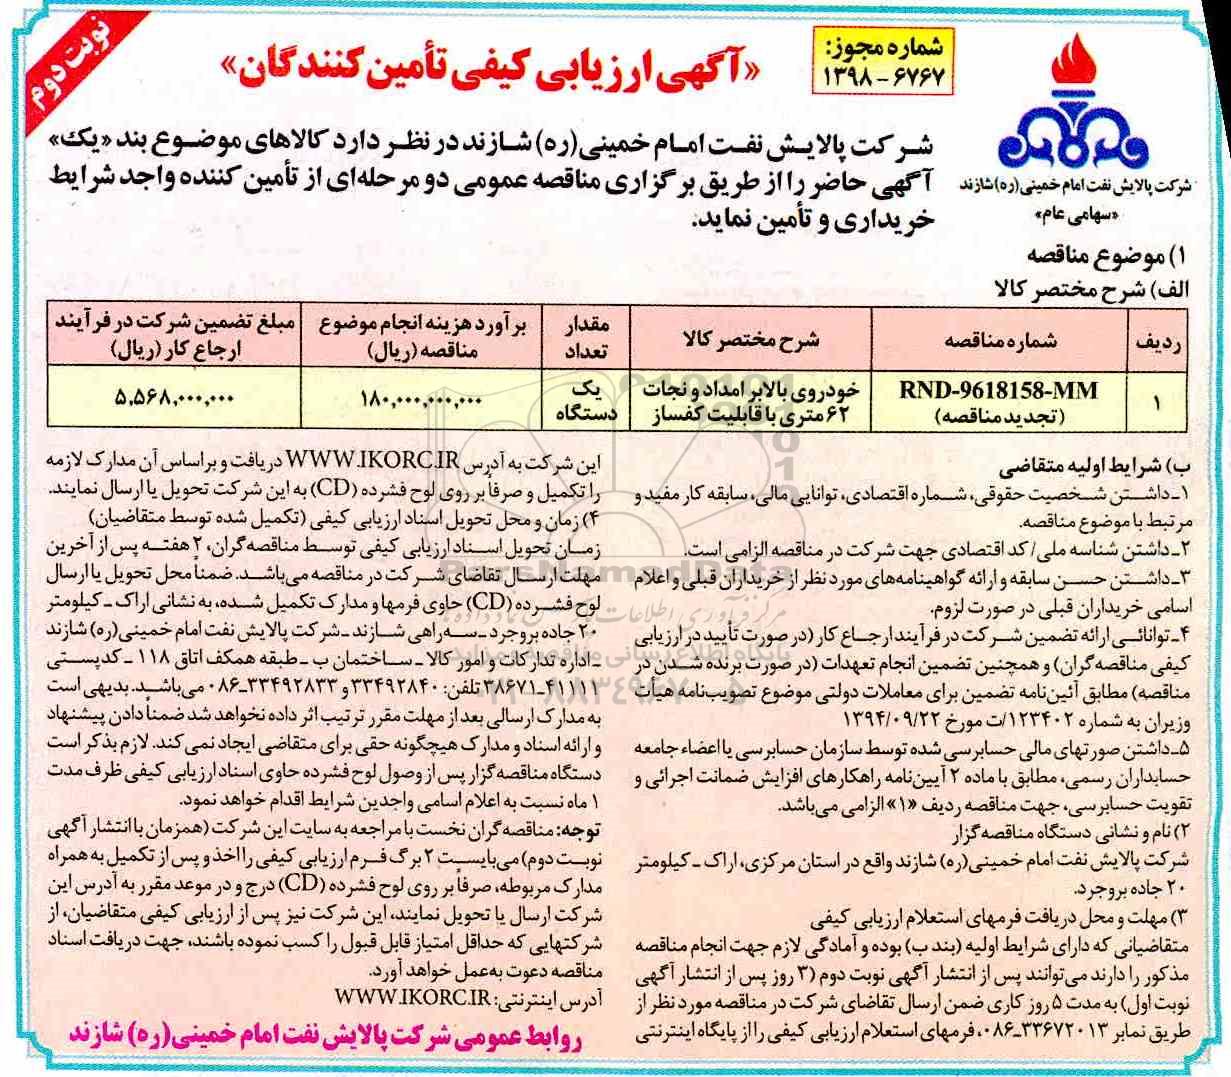 نوبت دوم
«آگهی ارزیابی کیفی تأمین کنندگان»
شماره مجوز:
۱۳۹۸-۶۷۶۷
شرکت پالایش نفت امام خمینی(ره) شازند
«سهامی عام»
شرکت پالایش نفت امام خمینی(ره) شازند در نظر دارد کالاهای موضوع بند «یک»
آگهی حاضر را از طریق برگزاری مناقصه عمومی دو مرحله‌ای از تأمین کننده واجد شرایط
خریداری و تأمین نماید.
۱) موضوع مناقصه
الف) شرح مختصر کالا
ردیف | شماره مناقصه | شرح مختصر کالا | مقدار تعداد | برآورد هزینه انجام موضوع مناقصه (ریال) | مبلغ تضمین شرکت در فرآیند ارجاع کار (ریال)
۱ | RND-9618158-MM (تجدید مناقصه) | خودروی بالابر امداد و نجات ۶۲ متری با قابلیت کفساز | یک دستگاه | ۱۸۰,۰۰۰,۰۰۰,۰۰۰ | ۵,۵۶۸,۰۰۰,۰۰۰
ب) شرایط اولیه متقاضی
۱ـ داشتن شخصیت حقوقی، شماره اقتصادی، توانایی مالی، سابقه کار مفید و
مرتبط با موضوع مناقصه.
۲ـ داشتن شناسه ملی/ کد اقتصادی جهت شرکت در مناقصه الزامی است.
۳ـ داشتن حسن سابقه و ارائه گواهینامه‌های مورد نظر از خریداران قبلی و اعلام
اسامی خریداران قبلی در صورت لزوم.
۴ـ توانائی ارائه تضمین شرکت در فرآیند ارجاع کار (در صورت تأیید در ارزیابی
کیفی مناقصه‌گران) و همچنین تضمین انجام تعهدات (در صورت برنده شدن در
مناقصه) مطابق آئین‌نامه تضمین برای معاملات دولتی موضوع تصویب‌نامه هیأت
وزیران به شماره ۱۲۳۴۰۲/ت مورخ ۱۳۹۴/۰۹/۲۲
۵ـ داشتن صورتهای مالی حسابرسی شده توسط سازمان حسابرسی یا اعضاء جامعه
حسابداران رسمی، مطابق با ماده ۲ آیین‌نامه راهکارهای افزایش ضمانت اجرائی و
تقویت حسابرسی، جهت مناقصه ردیف «۱» الزامی می‌باشد.
۲) نام و نشانی دستگاه مناقصه‌گزار
شرکت پالایش نفت امام خمینی(ره) شازند واقع در استان مرکزی، اراک ـ کیلومتر
۲۰ جاده بروجرد.
۳) مهلت و محل دریافت فرمهای استعلام ارزیابی کیفی
متقاضیانی که دارای شرایط اولیه (بند ب) بوده و آمادگی لازم جهت انجام مناقصه
مذکور را دارند می‌توانند پس از انتشار آگهی نوبت دوم (۳ روز پس از انتشار آگهی
نوبت اول) به مدت ۵ روز کاری ضمن ارسال تقاضای شرکت در مناقصه مورد نظر از
طریق نمابر ۳۳۶۷۲۰۱۳-۰۸۶، فرمهای استعلام ارزیابی کیفی را از پایگاه اینترنتی
این شرکت به آدرس WWW.IKORC.IR دریافت و براساس آن مدارک لازمه
را تکمیل و صرفاً بر روی لوح فشرده (CD) به این شرکت تحویل یا ارسال نمایند.
۴) زمان و محل تحویل اسناد ارزیابی کیفی (تکمیل شده توسط متقاضیان)
زمان تحویل اسناد ارزیابی کیفی توسط مناقصه‌گران، ۲ هفته پس از آخرین
مهلت ارسال تقاضای شرکت در مناقصه می‌باشد. ضمناً محل تحویل یا ارسال
لوح فشرده (CD) حاوی فرمها و مدارک تکمیل شده، به نشانی اراک ـ کیلومتر
۲۰ جاده بروجرد ـ سه‌راهی شازند ـ شرکت پالایش نفت امام خمینی(ره) شازند
ـ اداره تدارکات و امور کالا ـ ساختمان ب ـ طبقه همکف اتاق ۱۱۸ ـ کدپستی
۴۱۱۱۱-۳۸۶۷۱ تلفن: ۳۳۴۹۲۸۴۰ و ۳۳۴۹۲۸۳۳-۰۸۶ می‌باشد. بدیهی است
به مدارک ارسالی بعد از مهلت مقرر ترتیب اثر داده نخواهد شد ضمناً دادن پیشنهاد
و ارائه اسناد و مدارک هیچگونه حقی برای متقاضی ایجاد نمی‌کند. لازم بذکر است
دستگاه مناقصه‌گزار پس از وصول لوح فشرده حاوی اسناد ارزیابی کیفی ظرف مدت
۱ ماه نسبت به اعلام اسامی واجدین شرایط اقدام خواهد نمود.
توجه: مناقصه‌گران نخست با مراجعه به سایت این شرکت (همزمان با انتشار آگهی
نوبت دوم) می‌بایست ۲ برگ فرم ارزیابی کیفی را اخذ و پس از تکمیل به همراه
مدارک مربوطه، صرفاً بر روی لوح فشرده (CD) درج و در موعد مقرر به آدرس این
شرکت ارسال یا تحویل نمایند، این شرکت نیز پس از ارزیابی کیفی متقاضیان، از
شرکتهایی که حداقل امتیاز قابل قبول را کسب نموده باشند، جهت دریافت اسناد
مناقصه دعوت به‌عمل خواهد آورد.
آدرس اینترنتی: WWW.IKORC.IR
روابط عمومی شرکت پالایش نفت امام خمینی(ره) شازند
ParsNamadData
پایگاه اطلاع رسانی مناقصه و مزایده